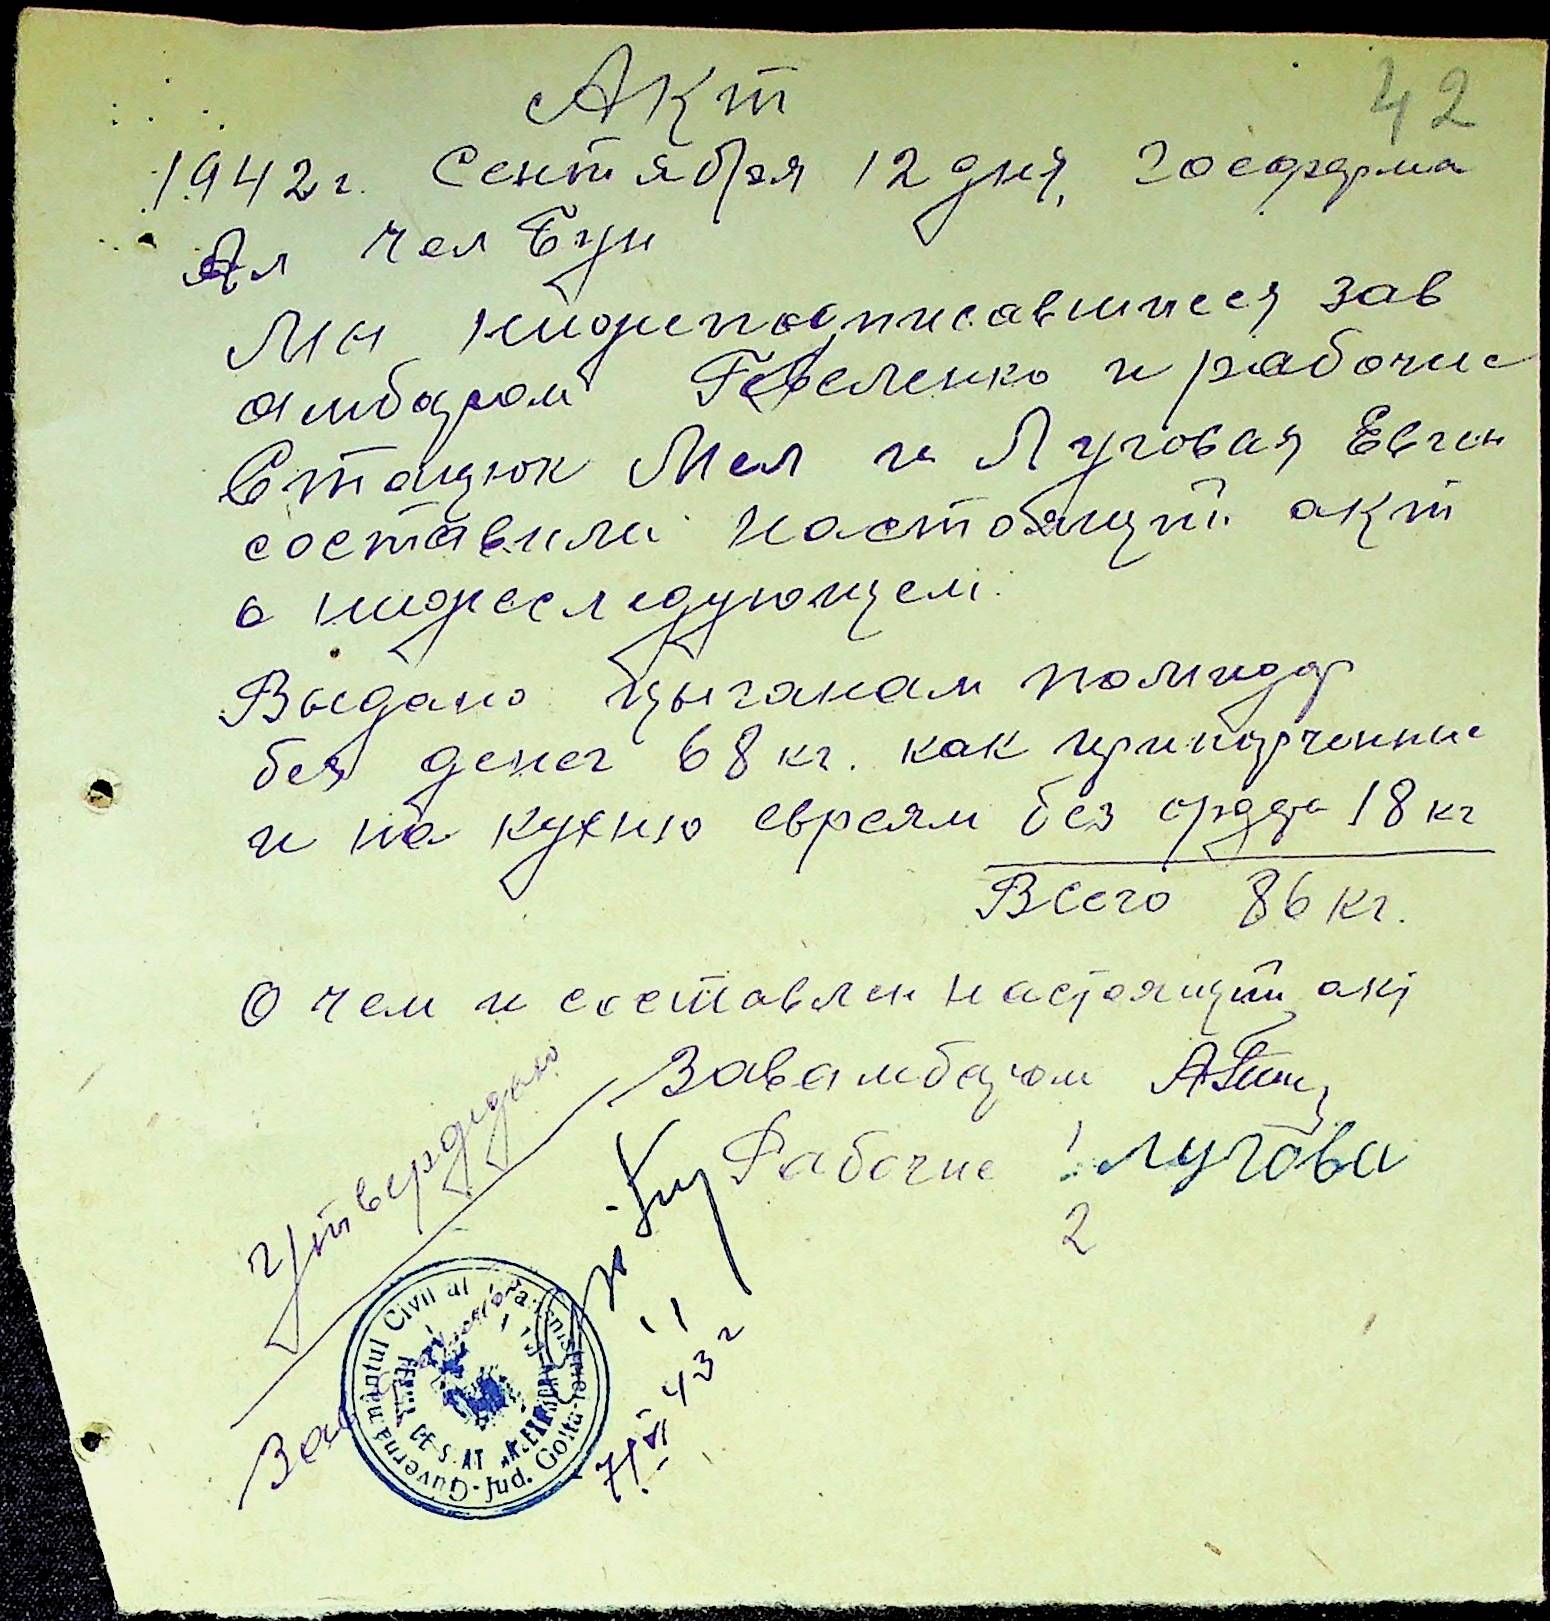 42
Акт
1942 г. Сентября 12 дня, Госферма
Ал чел Бун
Мы нижеподписавшиеся зав
амбаром и рабочие
Стацюк Мел и Луговая Евген
составили настоящий акт
о нижеследующем.
Выдано цыганам помидор
без денег 68 кг. как
и на кухню евреям без 18 кг
Всего 86 кг.
О чем и составлен настоящий акт
Завамбаром
Рабочие 1 Лугова
2
Утверждаю
Зав
Guvernamântul Civil al Transnistriei
Jud. Golta
43 г